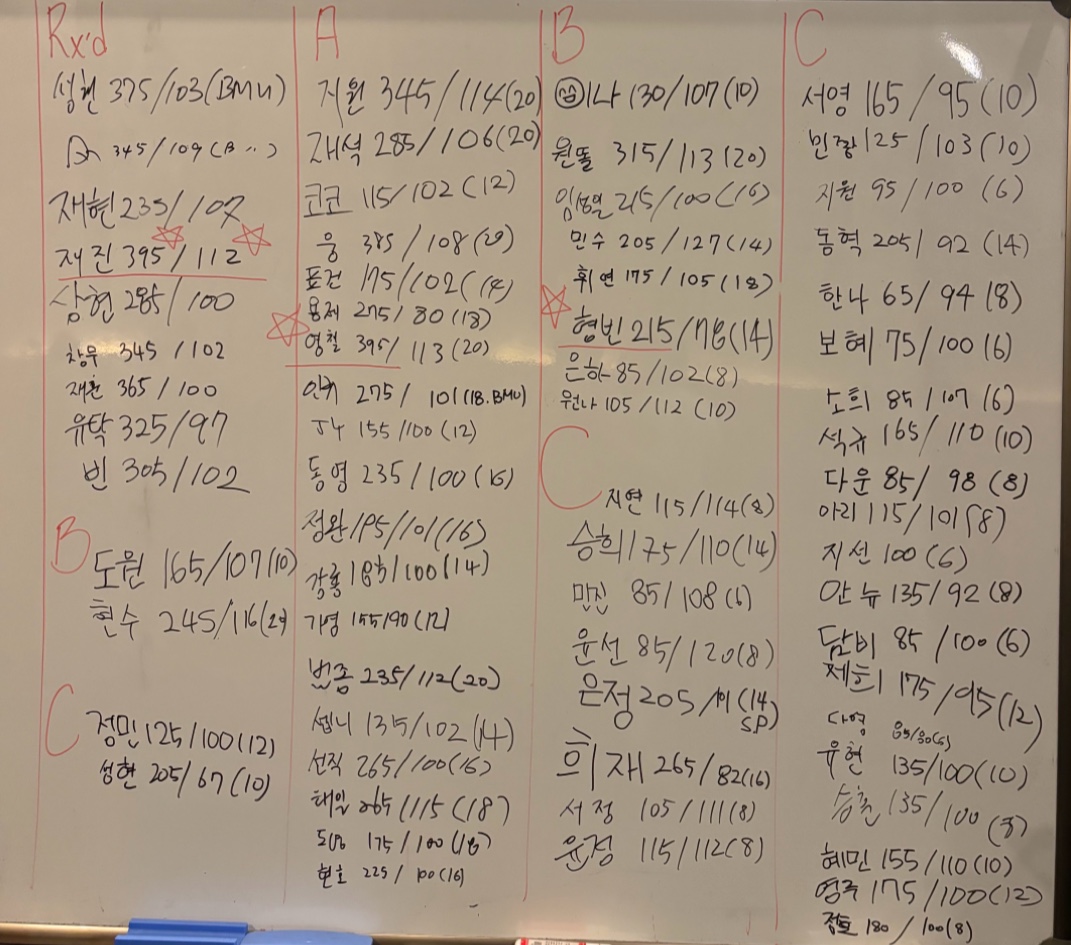 Rx'd
성현 375/103(BMU)
345/109(B〃)
재현 235/107
재진 395/112
상현 285/100
창우 345/102
재훈 365/100
유탁 325/97
빈 305/102
B
도원 165/107(10)
현수 245/116(20)
C
정민 125/100(12)
성현 205/67(10)
A
지원 345/114(20)
재석 285/106(20)
코코 115/102(12)
웅 385/108(20)
표건 175/102(14)
용제 275/80(18)
영철 395/113(20)
275/101(18.BMU)
155/100(12)
동영 235/100(16)
정완 195/101(16)
185/100(14)
가영 155/90(12)
범종 235/112(20)
쎕니 135/102(14)
선직 265/100(16)
태일 265/115(18)
도영 175/100(18)
현호 225/100(16)
B
130/107(10)
원똘 315/113(20)
임성열 215/100(16)
민수 205/127(14)
휘연 175/105(18)
형빈 215/78(14)
은하 85/102(8)
원나 105/112(10)
C
지연 115/114(8)
승희 175/110(14)
만진 85/108(6)
윤선 85/120(8)
은정 205/101(14
SP)
희재 265/82(16)
서정 105/111(8)
윤정 115/112(8)
C
서영 165/95(10)
민장 125/103(10)
지원 95/100(6)
동혁 205/92(14)
한나 65/94(8)
보혜 75/100(6)
노희 85/107(6)
석규 165/110(10)
다운 85/98(8)
아리 115/101(8)
지선 100(6)
안뉴 135/92(8)
담비 85/100(6)
제희 175/95(12)
다영
유현 135/100(10)
승훈 135/100(8)
혜민 155/110(10)
영주 175/100(12)
180/100(8)